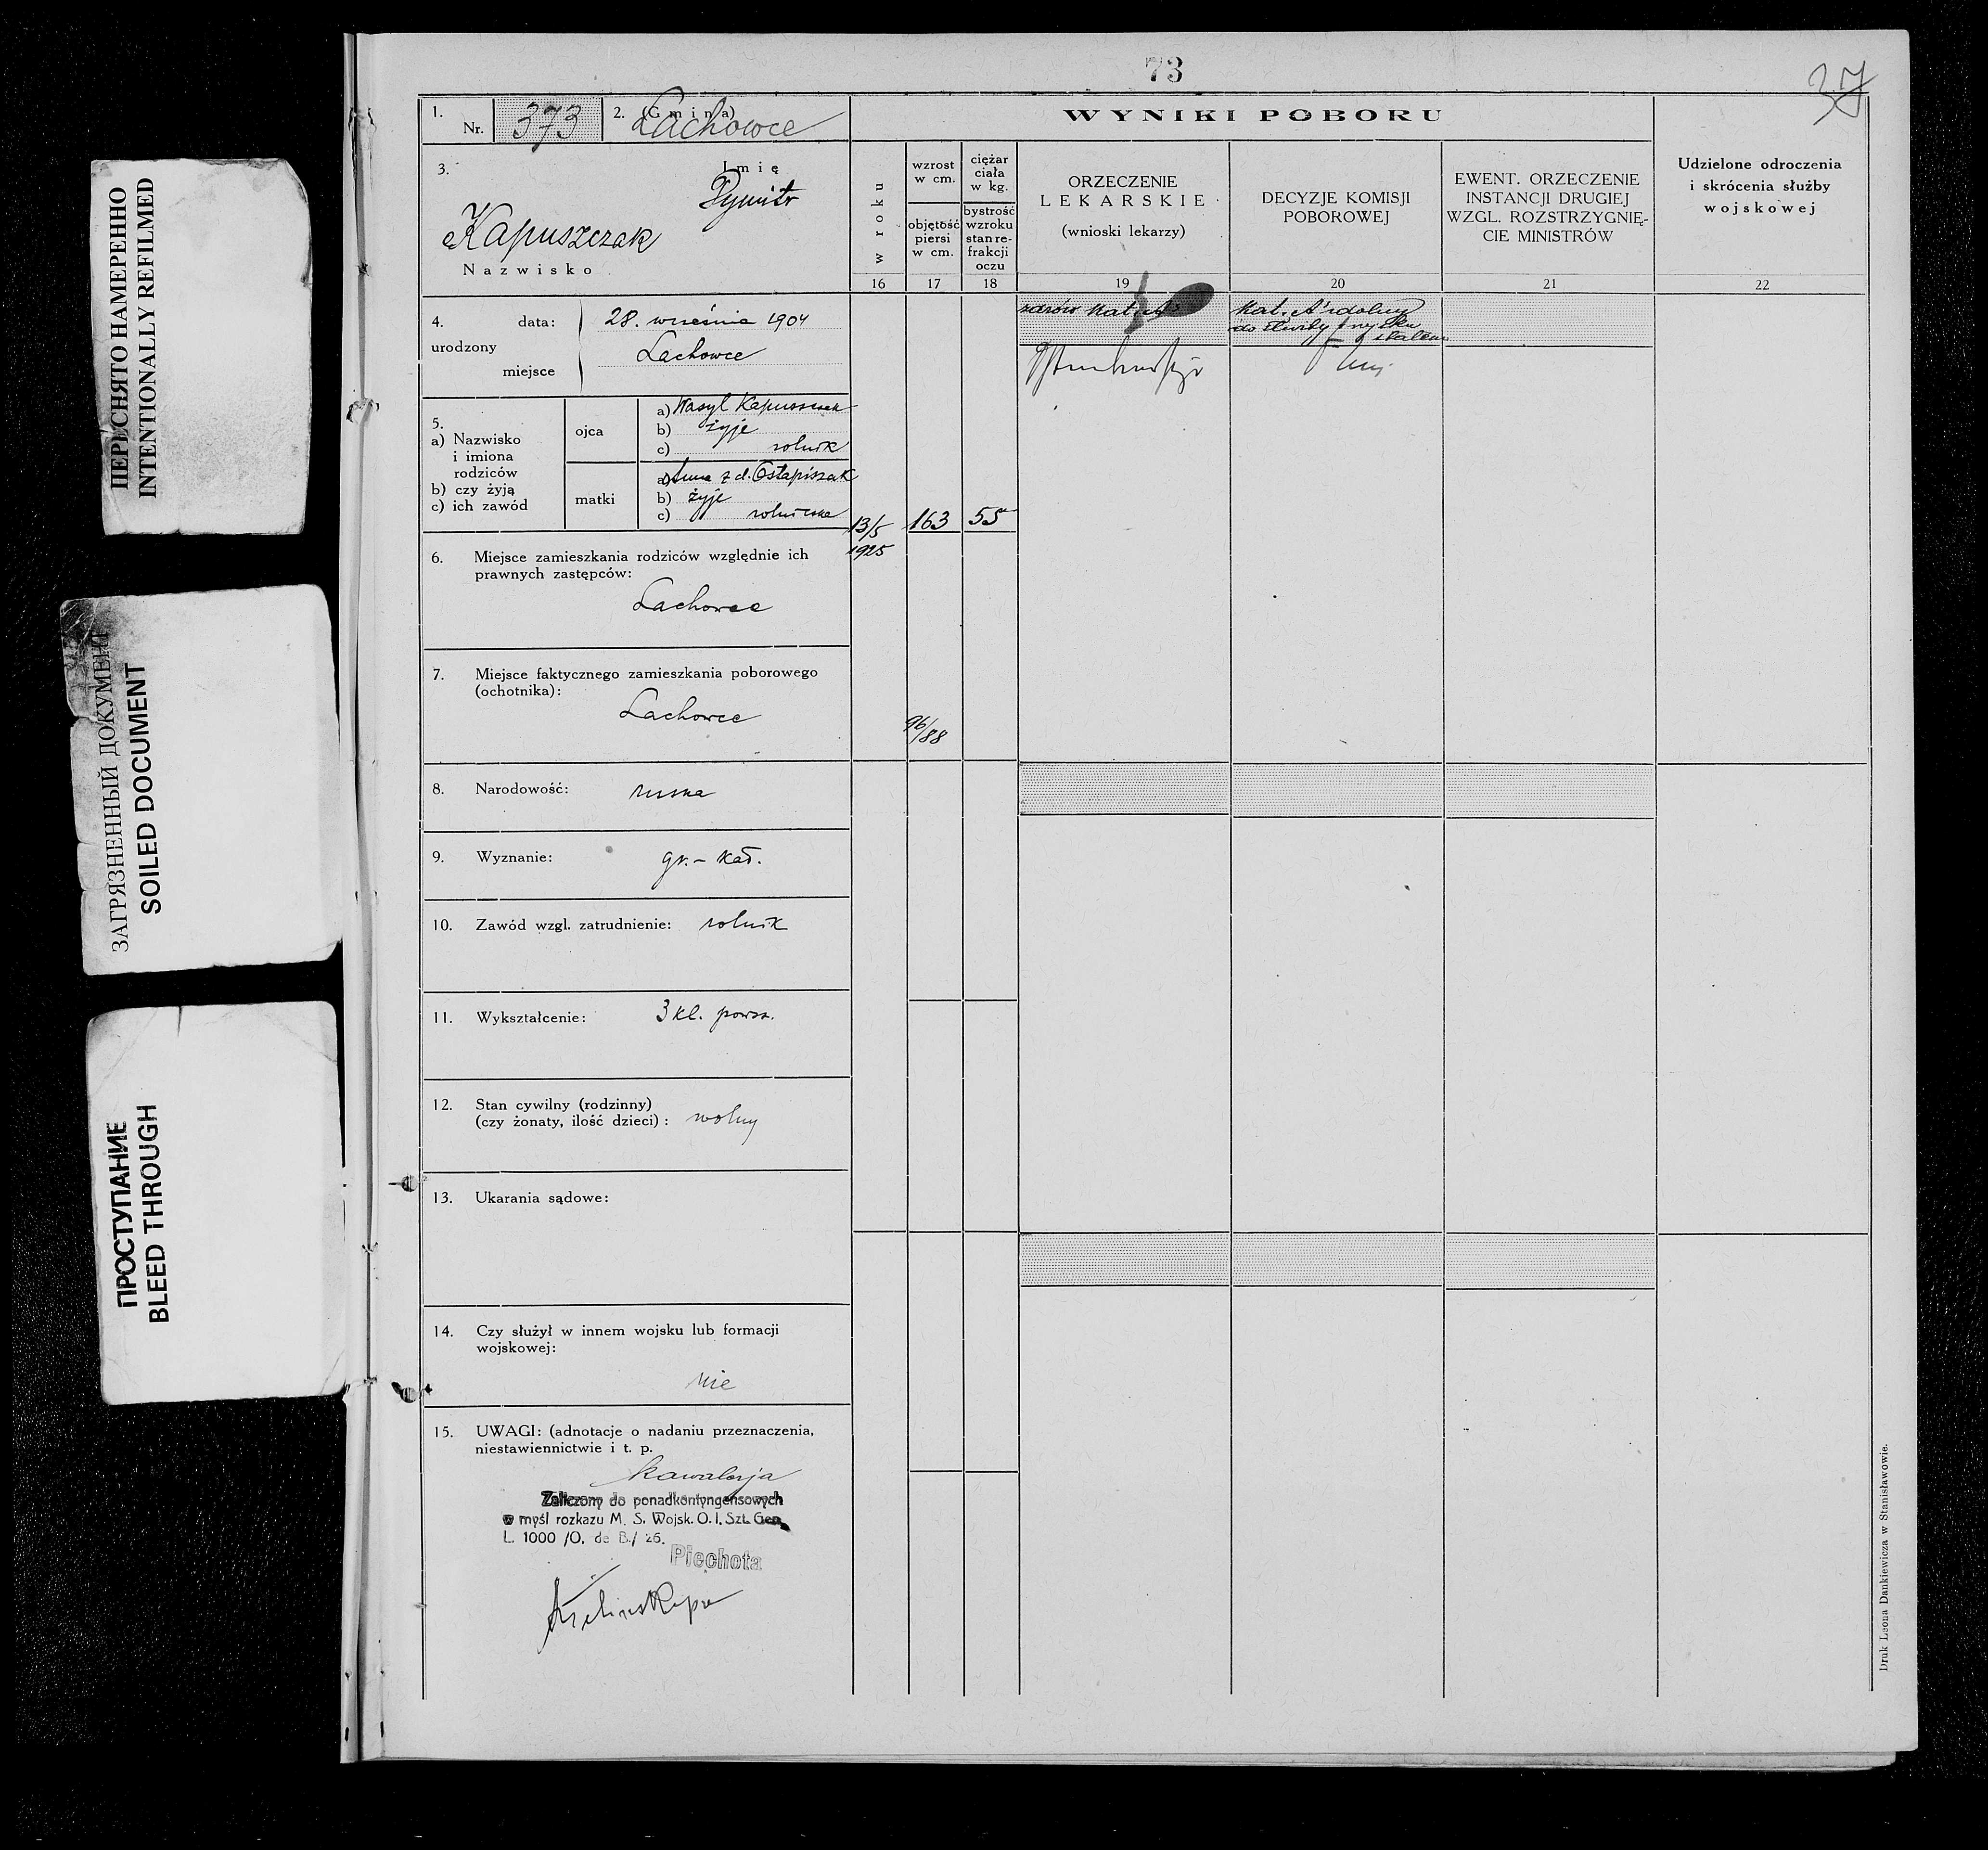 73
37
ПЕРЕСНЯТО НАМЕРЕННО
INTENTIONALLY REFILMED
ЗАГРЯЗНЕННЫЙ ДОКУМЕНТ
SOILED DOCUMENT
ПРОСТУПАНИЕ
BLEED THROUGH
1. Nr. 373
2. (Gmina) Lachowce
3. Imię
Dymitr
Kapuszczak
Nazwisko
4. urodzony
data: 28. września 1904
miejsce Lachowce
5.
a) Nazwisko
i imiona
rodziców
b) czy żyją
c) ich zawód
ojca
a) Wasyl Kapuszczak
b) żyje
c) rolnik
matki
a) Anna z d. Ostapiszak
b) żyje
c) rolniczka
6. Miejsce zamieszkania rodziców względnie ich
prawnych zastępców:
Lachowce
7. Miejsce faktycznego zamieszkania poborowego
(ochotnika):
Lachowce
8. Narodowość: ruska
9. Wyznanie: gr.-kat.
10. Zawód wzgl. zatrudnienie: rolnik
11. Wykształcenie: 3 kl. powsz.
12. Stan cywilny (rodzinny)
(czy żonaty, ilość dzieci): wolny
13. Ukarania sądowe:
14. Czy służył w innem wojsku lub formacji
wojskowej:
nie
15. UWAGI: (adnotacje o nadaniu przeznaczenia,
niestawiennictwie i t. p.
kawalerja
Zaliczony do ponadkontyngensowych
w myśl rozkazu M. S. Wojsk. O. I. Szt. Gen.
L. 1000 /O. de B./ 26.
Piechota
WYNIKI POBORU
w roku
16
wzrost
w cm.
objętość
piersi
w cm.
17
ciężar
ciała
w kg.
bystrość
wzroku
stan re-
frakcji
oczu
18
ORZECZENIE
LEKARSKIE
(wnioski lekarzy)
19
DECYZJE KOMISJI
POBOROWEJ
20
EWENT. ORZECZENIE
INSTANCJI DRUGIEJ
WZGL. ROZSTRZYGNIĘ-
CIE MINISTRÓW
21
Udzielone odroczenia
i skrócenia służby
wojskowej
22
13/5
1925
163
55
96/88
zdrów kat.
Kat. A zdolny
do służby
Druk Leona Dankiewicza w Stanisławowie.